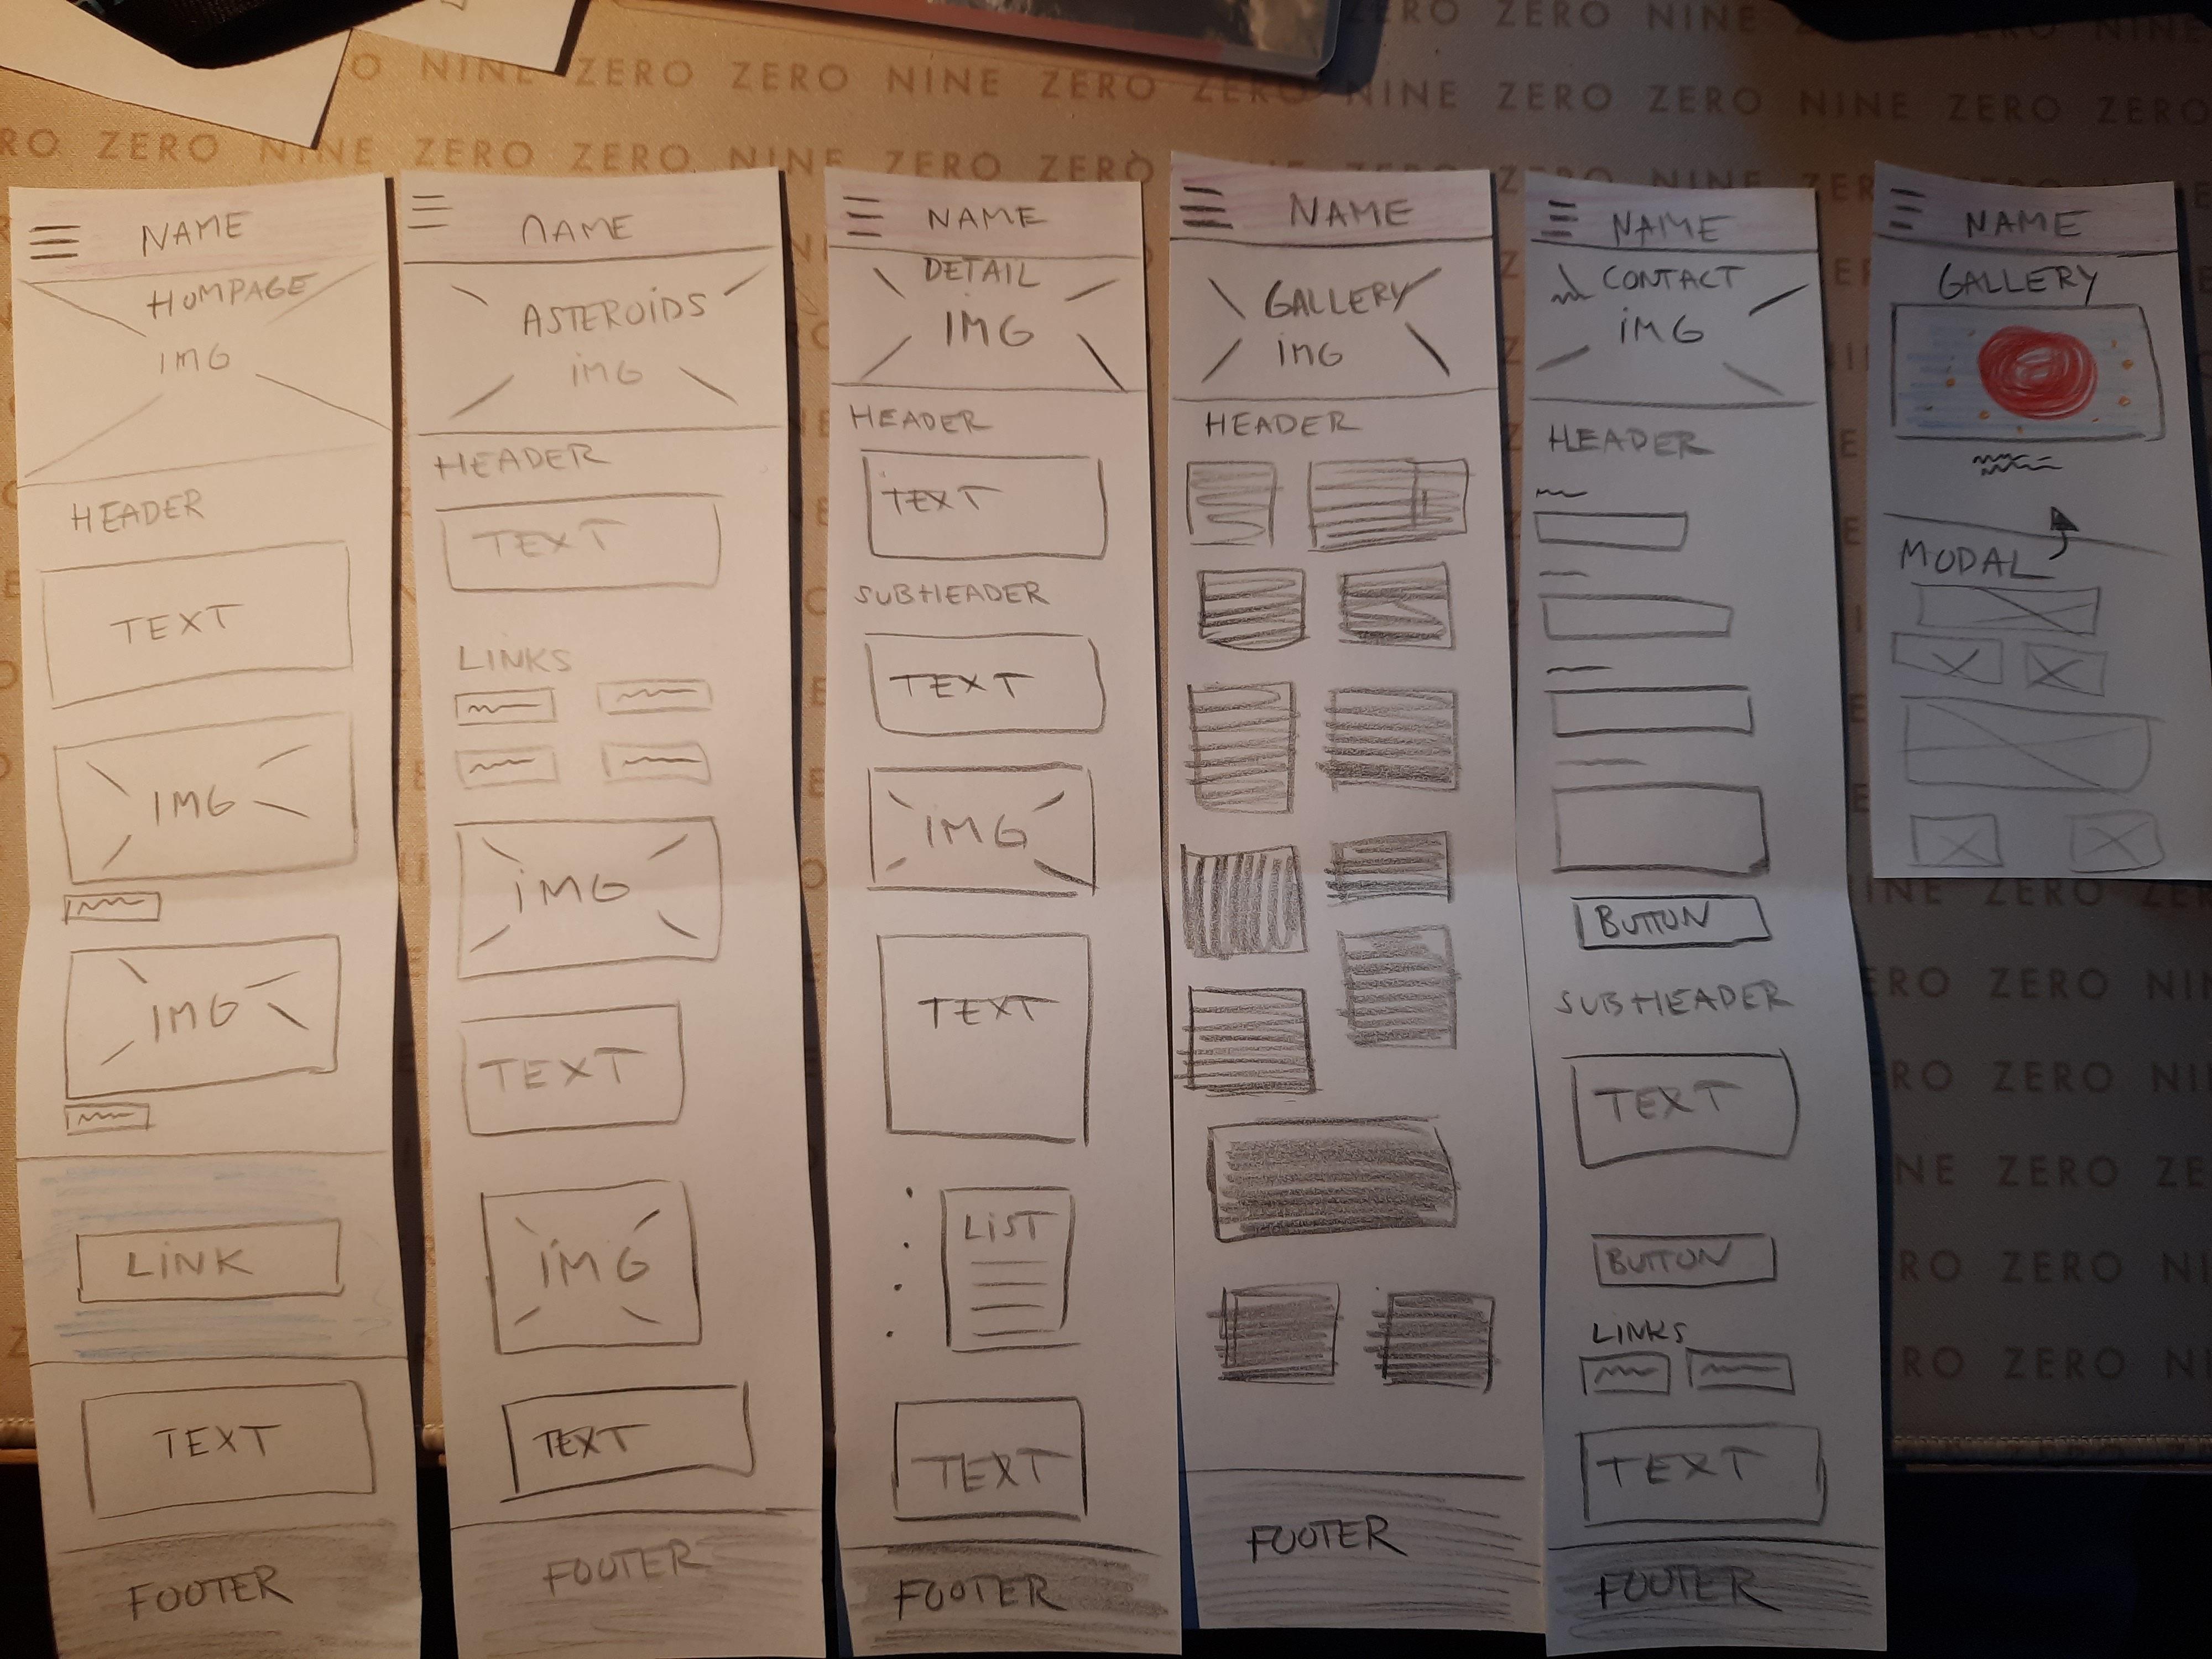 ZERO ZERO NINE ZERO
NINE ZERO ZERO NINE ZERO ZERO NINE ZERO ZERO NINE ZERO ZERO
RO ZERO NINE ZERO ZERO NINE ZERO ZERO
NAME
HOMPAGE
IMG
HEADER
TEXT
IMG
IMG
LINK
TEXT
FOOTER
NAME
ASTEROIDS
iMG
HEADER
TEXT
LINKS
iMG
TEXT
iMG
TEXT
FOOTER
NAME
DETAIL
IMG
HEADER
TEXT
SUBHEADER
TEXT
IMG
TEXT
LiST
TEXT
FOOTER
NAME
GALLERY
imG
HEADER
FOOTER
NAME
CONTACT
iMG
HEADER
BUTTON
SUBHEADER
TEXT
BUTTON
LINKS
TEXT
FOOTER
NAME
GALLERY
MODAL
INE ZERO ZER
ERO ZERO NIN
RO ZERO NI
NE ZERO ZE
RO ZERO NI
RO ZERO NI